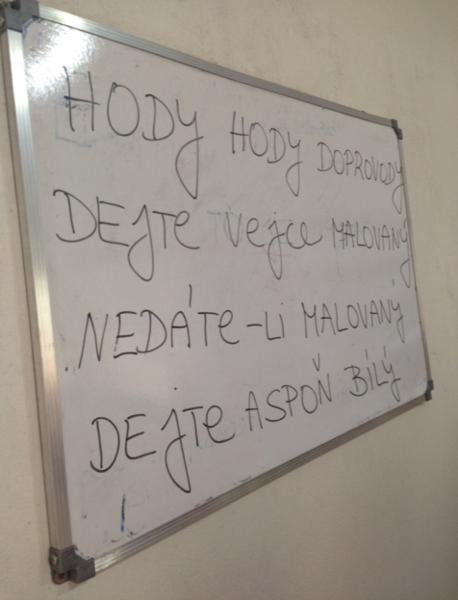 HODY HODY DOPROVODY
DEJTE vejce MALOVANÝ
NEDÁTE-LI MALOVANÝ
DEJTE ASPOŇ BÍLÝ